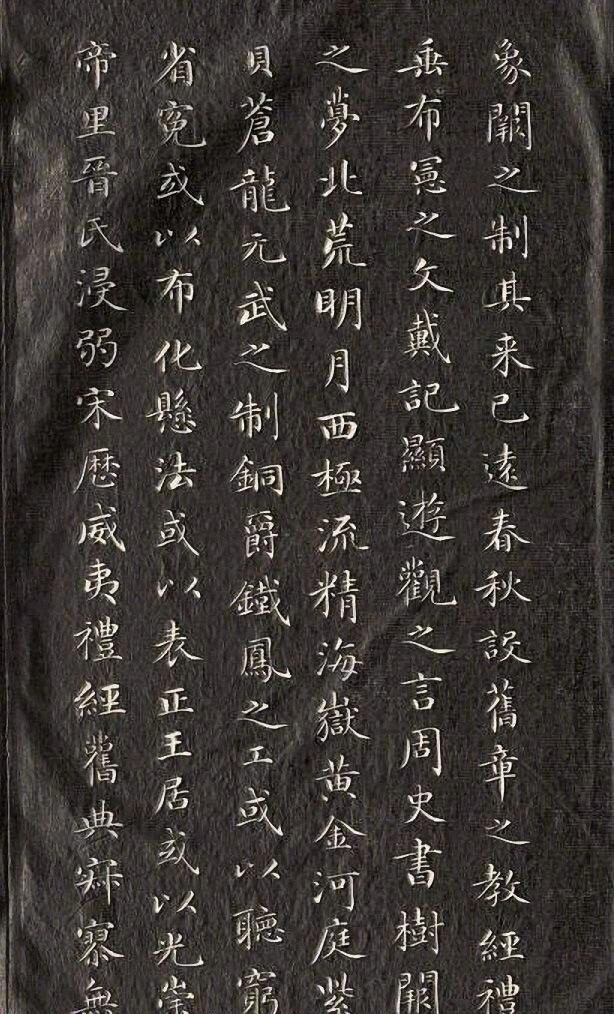 象闕之制其来已遠春秋設舊章之教經禮
垂布憲之文戴記顯遊觀之言周史書樹闕
之夢北荒明月西極流精海嶽黄金河庭紫
貝蒼龍元武之制銅爵鐵鳳之工或以聽窮
省寃或以布化懸法或以表正王居或以光崇
帝里晉氏浸弱宋歷威夷禮經舊典寂寥無